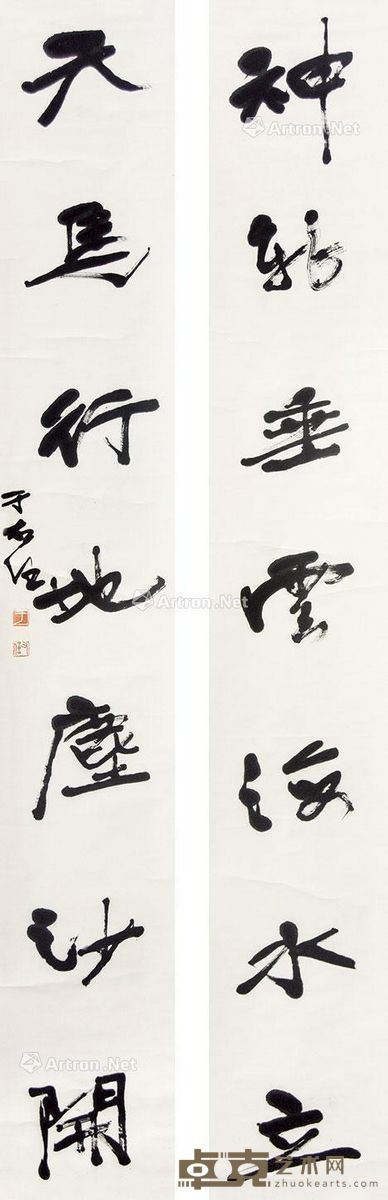 神龍垂雲海水立
天馬行地塵沙開
于右任
Artron.Net
Artron.Net
Artron.Net
卓克艺术网
zhuokearts.com